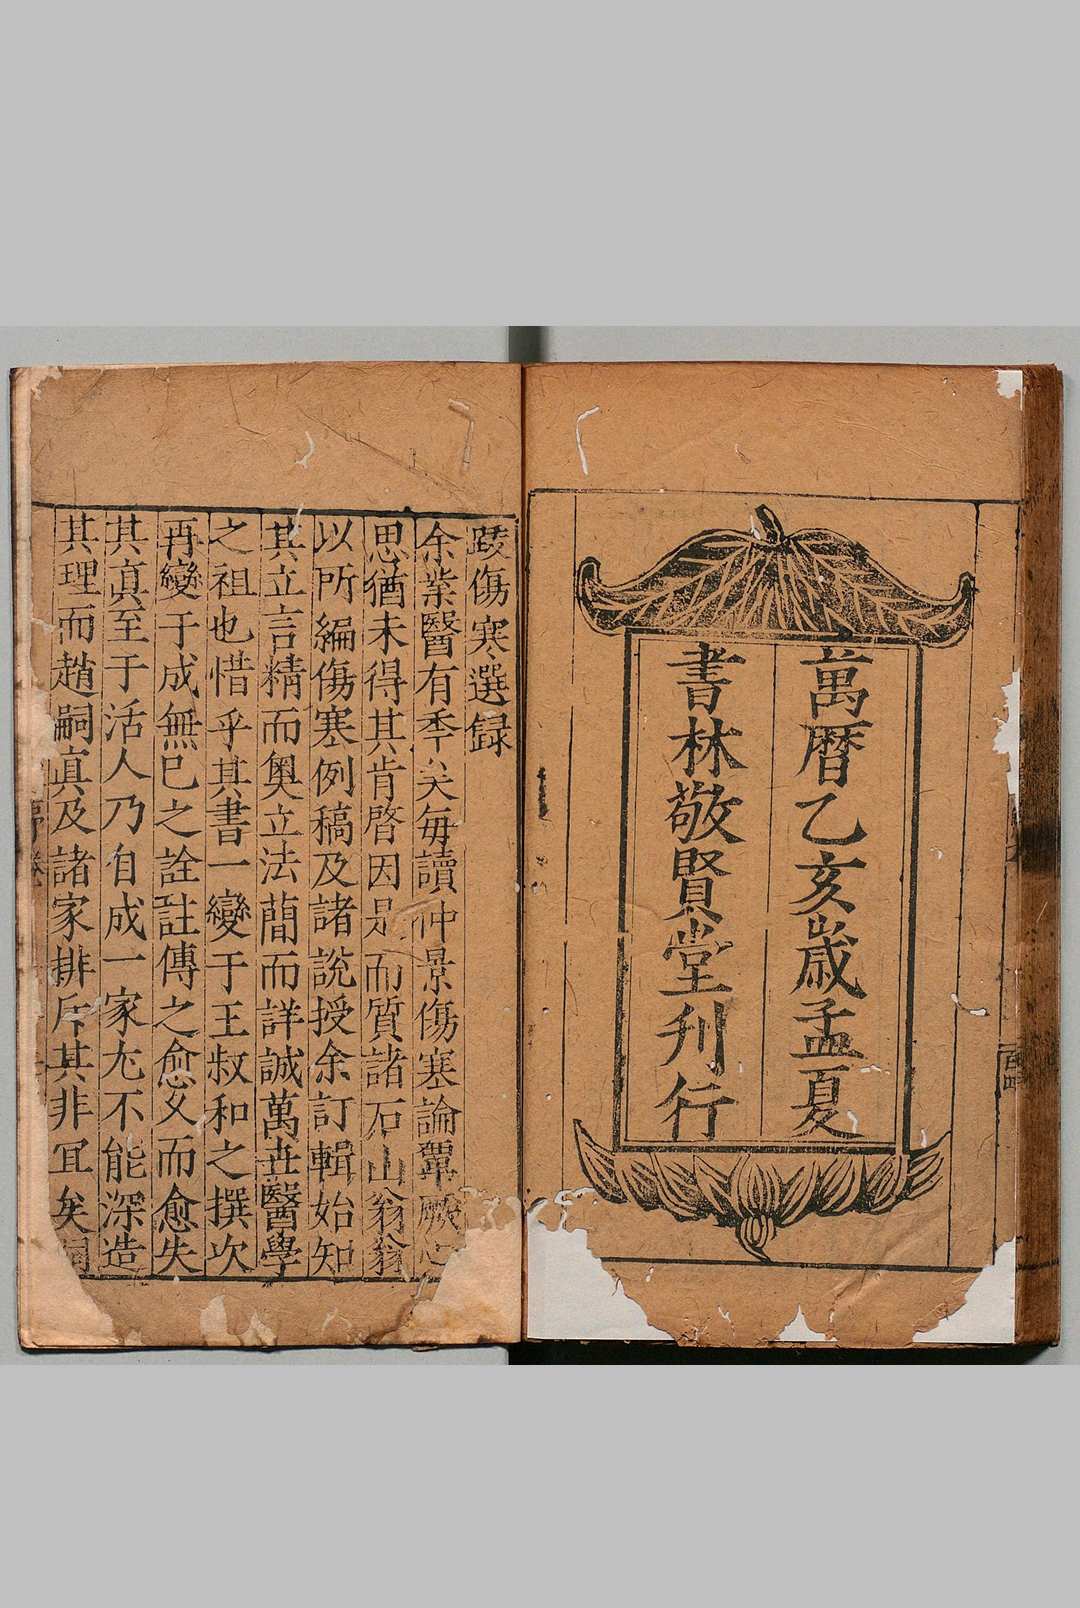 萬曆乙亥歲孟夏
書林敬賢堂刋行
跋傷寒選録
余業醫有季矣每讀仲景傷寒論覃厥心
思猶未得其肯綮因是而質諸石山翁翁
以所編傷寒例稿及諸說授余訂輯始知
其立言精而奧立法蕳而詳誠萬丗醫學
之祖也惜乎其書一變于王叔和之撰次
再變于成無已之詮註傳之愈乆而愈失
其真至于活人乃自成一家尢不能深造
其理而趙嗣真及諸家排斥其非冝矣